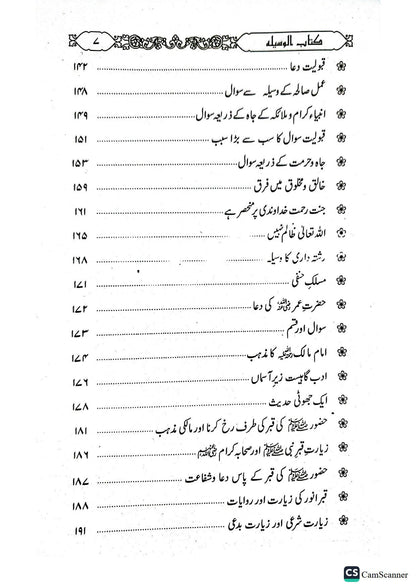 کتاب الوسیلہ ۷
قبولیت دعا ۱۴۲
عمل صالحہ کے وسیلہ سے سوال ۱۴۸
انبیاء کرام و ملائکہ کے جاہ کے ذریعہ سوال ۱۴۹
قبولیت سوال کا سب سے بڑا سبب ۱۵۱
جاہ و حرمت کے ذریعہ سوال ۱۵۳
خالق و مخلوق میں فرق ۱۵۹
جنت رحمت خداوندی پر منحصر ہے ۱۶۱
اللہ تعالیٰ ظالم نہیں ۱۶۵
رشتہ داری کا وسیلہ ۱۶۸
مسلک حنفی ۱۷۱
حضرت عمر رضی اللہ عنہ کی دعا ۱۷۲
سوال اور قسم ۱۷۳
امام مالک رحمہ اللہ کا مذہب ۱۷۴
ادب گاہیست زیر آسماں ۱۷۶
ایک جھوٹی حدیث ۱۷۸
حضور ﷺ کی قبر کی طرف رخ کرنا اور مالکی مذہب ۱۸۱
زیارت قبر نبی ﷺ اور صحابہ کرام رضی اللہ عنہم ۱۸۶
حضور ﷺ کی قبر کے پاس دعا و شفاعت ۱۸۷
قبر انور کی زیارت اور روایات ۱۸۸
زیارت شرعی اور زیارت بدعی ۱۹۱
CS CamScanner